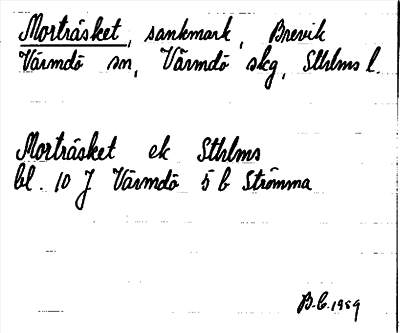 Morträsket, sankmark, Brevik
Värmdö sn, Värmdö skg, Sthlms l.
Morträsket ek Sthlms
bl. 10 J Värmdö 5 b Strömma
B.C. 1989